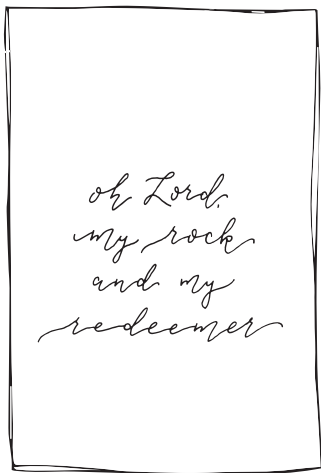 oh Lord,
my rock
and my
redeemer